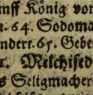 mff König von
n. 64. Sodoma
ndert. 65. Gebe
r. Melchised
s Seligmacher